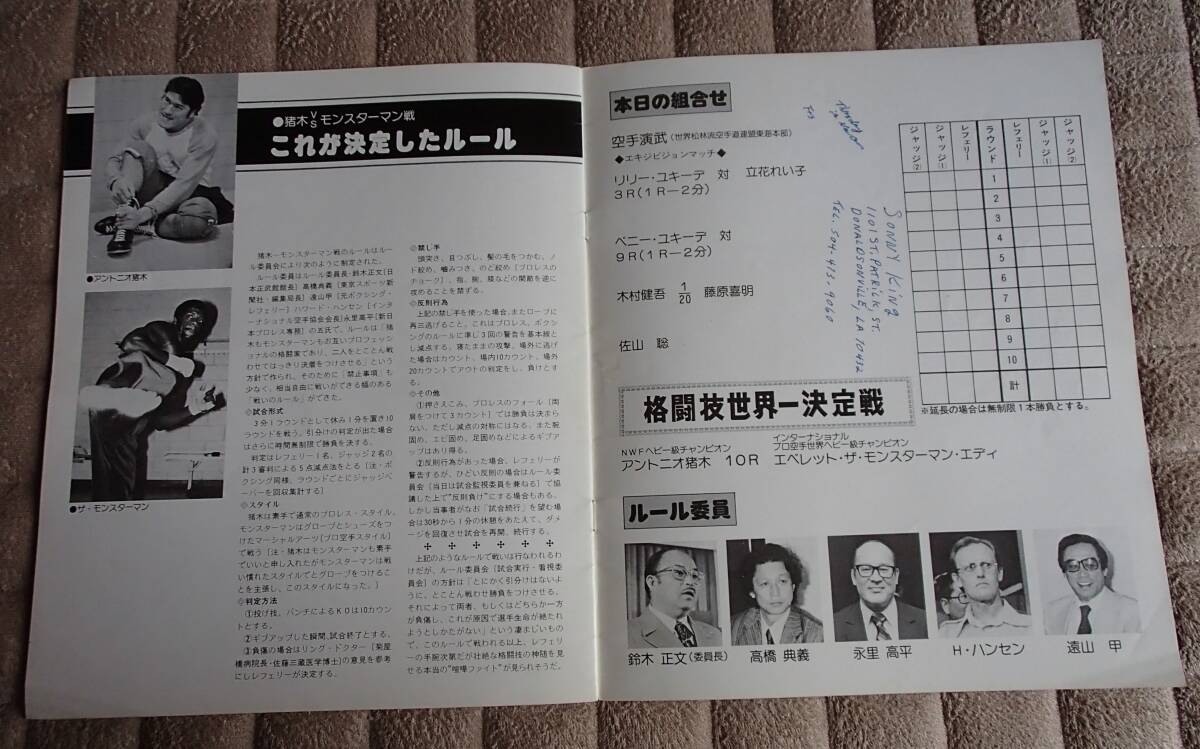 ●猪木VSモンスターマン戦
これが決定したルール
●アントニオ猪木
●ザ・モンスターマン
猪木ーモンスターマン戦のルールはルー
ル委員会により次のように制定された。
ルール委員はルール委員長・鈴木正文〔日
本正武館館長〕高橋典義〔東京スポーツ新
聞社・編集局長〕遠山甲〔元ボクシング・
レフェリー〕ハワード・ハンセン〔インタ
ーナショナル空手協会会長〕永里高平〔新日
本プロレス専務〕の五氏で、ルールは「猪
木もモンスターマンもお互いプロフェッシ
ョナルの格闘家であり、二人をとことん戦
わせてはっきり決着をつけさせる」という
方針で作られ、そのために「禁止事項」も
少なく、相当自由に戦いができる幅のある
「戦いのルール」ができた。
◇試合形式
3分1ラウンドとして休み1分を置き10
ラウンドを戦う。引分けの判定が出た場合
はさらに時間無制限で勝負を決する。
判定はレフェリー1名、ジャッジ2名の
計3審判による5点減点法をとる〔注・ボ
クシング同様、ラウンドごとにジャッジペ
ーパーを回収集計する〕
◇スタイル
猪木は素手で通常のプロレス・スタイル、
モンスターマンはグローブとシューズをつ
けたマーシャルアーツ〔プロ空手スタイル〕
で戦う〔注・猪木はモンスターマンも素手
でいいと申し入れたがモンスターマンは戦
い慣れたスタイルでとグローブをつけるこ
とを主張し、このスタイルになった。〕
◇判定方法
①投げ技、パンチによるKOは10カウン
トとする。
②ギブアップした瞬間、試合終了とする。
③負傷の場合はリング・ドクター〔菊屋
橋病院長・佐藤三蔵医学博士〕の意見を参考
にしレフェリーが決定する。
◇禁し手
頭突き、目つぶし、髪の毛をつかむ、ノ
ド絞め、嚙みつき、のど絞め〔プロレスの
チョーク〕、指、腕、膝などの関節を逆に
攻めることを禁ずる。
◇反則行為
上記の禁し手を使った場合、またロープに
再三逃げること。これはプロレス、ボクシ
ングのルールに準じ3回の警告を基本線と
し減点する。寝たままの攻撃、場外に逃げ
た場合はカウント、場内10カウント、場外
20カウントでアウトの判定をし、負けとす
る。
◇その他
①押さえこみ、プロレスのフォール〔両
肩をつけて3カウント〕では勝負は決まら
ない。ただし減点の対称にはなる。また腕
固め、エビ固め、足固めなどによるギブア
ップはあり得る。
②反則行為があった場合、レフェリーが
警告するが、ひどい反則の場合はルール委
員会〔当日は試合監視委員を兼ねる〕で協
議した上で"反則負け"にする場合もある。
しかし当事者がなお「試合続行」を望む場
合は30秒から1分の休憩をあたえて、ダメ
ージを回復させ試合を再開、続行する。
上記のようなルールで戦いは行なわれるわ
けだが、ルール委員会〔試合実行・看視委
員会〕の方針は「とにかく引分けはないよ
うに、とことん戦わせ勝負をつけさせる。
それによって両者、もしくはどちらか一方
が負傷し、これが原因で選手生命が絶たれ
ようとしかたがない」という凄ましいもの
で、このルールで戦われる以上、レフェリ
ーの手腕次第だが壮絶な格闘技の神髄を見
せる本当の"喧嘩ファイト"が見られそうだ。
本日の組合せ
空手演武(世界松林流空手道連盟東海本部)
◆エキジビジョンマッチ◆
リリー・ユキーデ 対 立花れい子
3R(1R－2分)
ベニー・ユキーデ 対
9R(1R－2分)
木村健吾 1/20 藤原喜明
佐山 聡
SONNY KING
1101 ST. PATRICK, ST.
DONALDSONVILLE, LA 70432
TEL. 504-473-9060
ジャッジ(2) ジャッジ(1) レフェリー ラウンド レフェリー ジャッジ(1) ジャッジ(2)
1
2
3
4
5
6
7
8
9
10
計
※延長の場合は無制限1本勝負とする。
格闘技世界一決定戦
NWFヘビー級チャンピオン
アントニオ猪木 10R
インターナショナル
プロ空手世界ヘビー級チャンピオン
エベレット・ザ・モンスターマン・エディ
ルール委員
鈴木 正文(委員長)
高橋 典義
永里 高平
H・ハンセン
遠山 甲